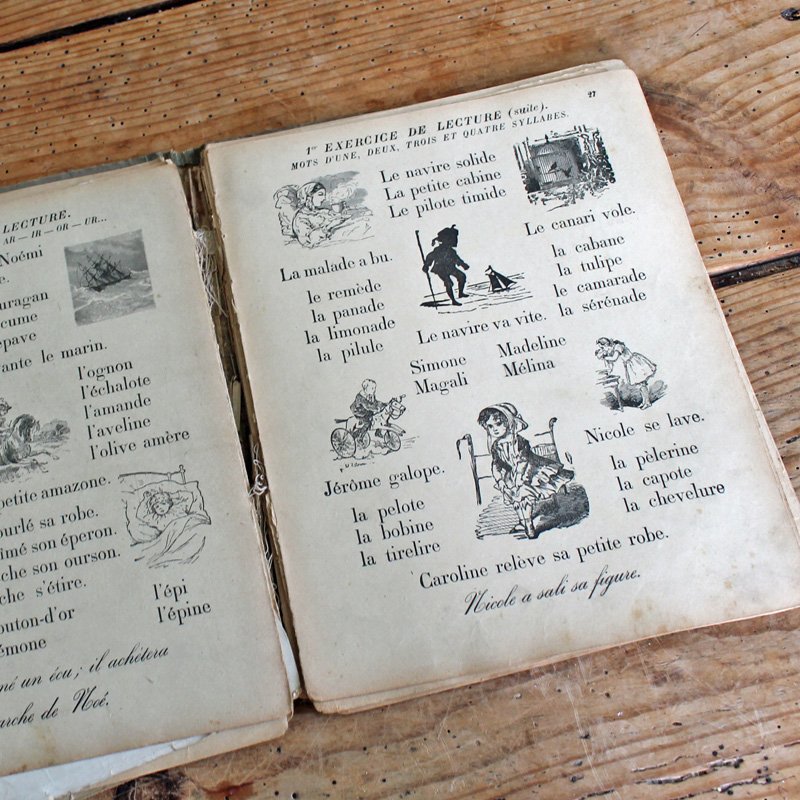 LECTURE.
AR — IR — OR — UR...
Noémi
l'ognon
l'échalote
l'amande
l'aveline
l'olive amère
le marin.
petite amazone.
sa robe.
son éperon.
son ourson.
s'étire.
l'épi
l'épine
un écu; il achètera
de Noé.
27
1er EXERCICE DE LECTURE (suite).
MOTS D'UNE, DEUX, TROIS ET QUATRE SYLLABES.
Le navire solide
La petite cabine
Le pilote timide
Le canari vole.
La malade a bu.
le remède
la panade
la limonade
la pilule
la cabane
la tulipe
le camarade
la sérénade
Le navire va vite.
Simone
Magali
Madeline
Mélina
Jérôme galope.
la pelote
la bobine
la tirelire
Nicole se lave.
la pèlerine
la capote
la chevelure
Caroline relève sa petite robe.
Nicole a sali sa figure.